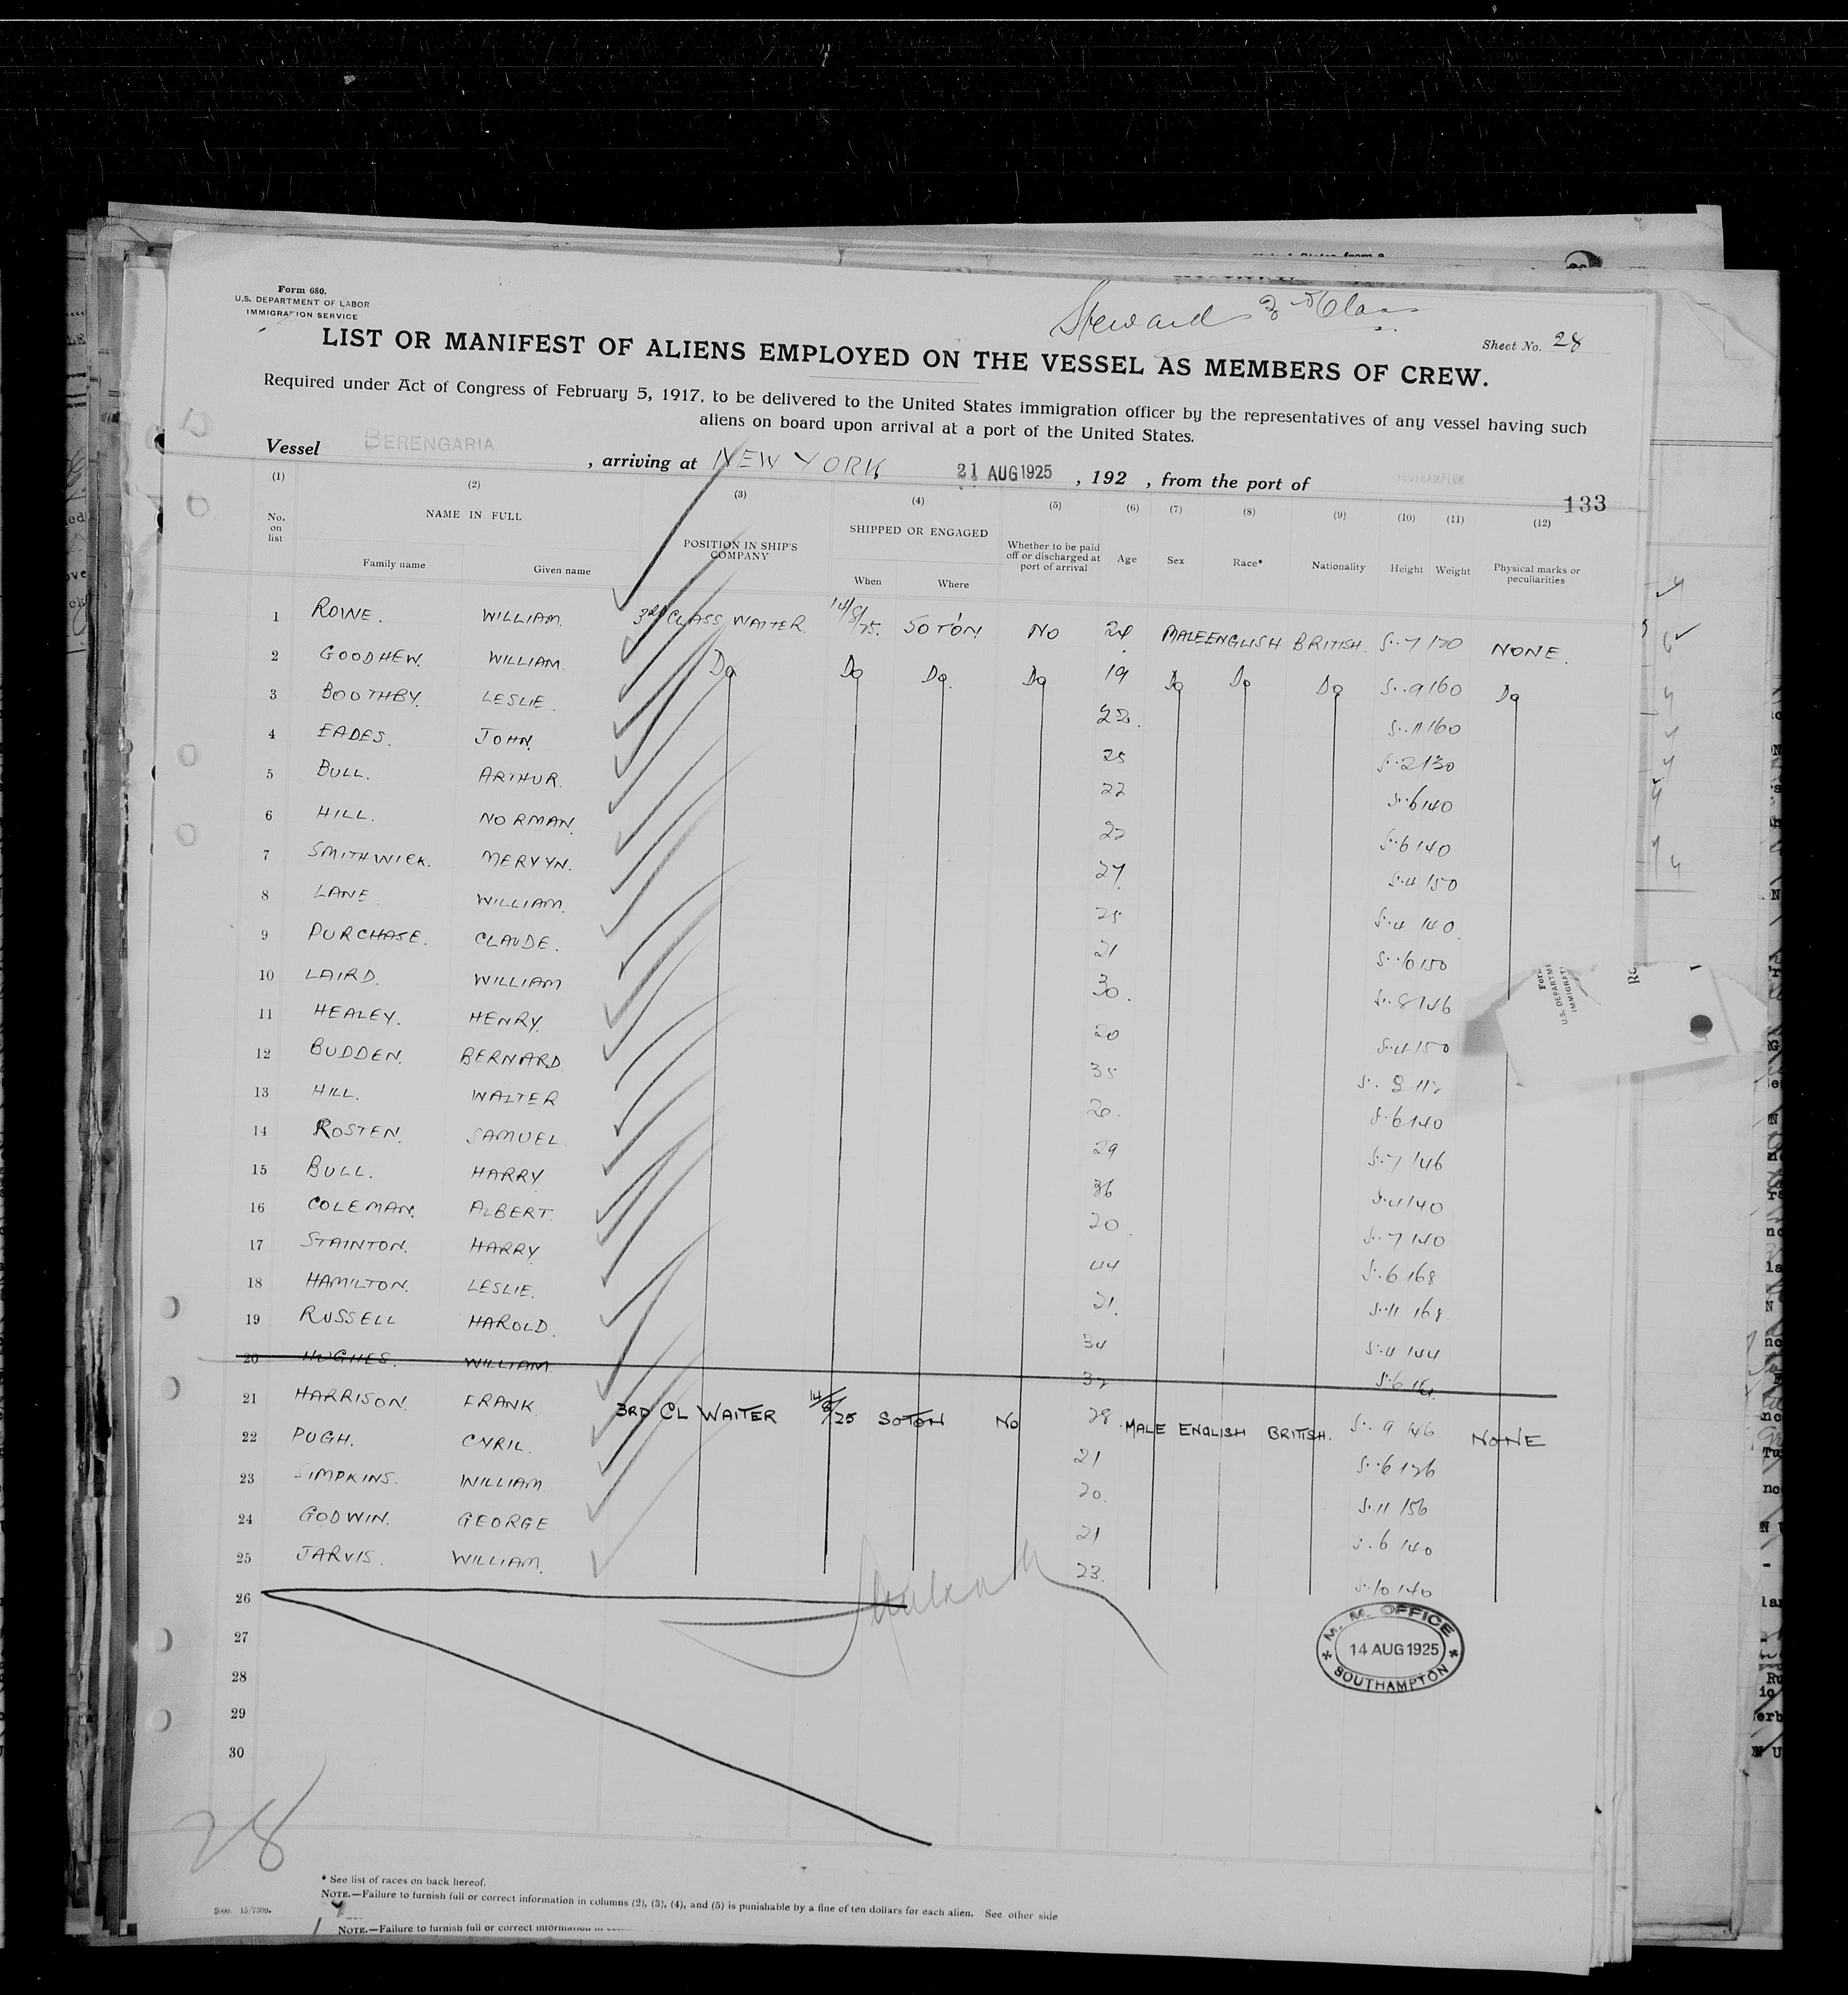 Form 680.
U.S. DEPARTMENT OF LABOR
IMMIGRATION SERVICE
Stewards 3rd Class
Sheet No. 28
LIST OR MANIFEST OF ALIENS EMPLOYED ON THE VESSEL AS MEMBERS OF CREW.
Required under Act of Congress of February 5, 1917, to be delivered to the United States immigration officer by the representatives of any vessel having such
aliens on board upon arrival at a port of the United States.
Vessel BERENGARIA, arriving at NEW YORK 21 AUG 1925, 192 , from the port of SOUTHAMPTON.
133
(1) (2) (3) (4) (5) (6) (7) (8) (9) (10) (11) (12)
No. on list NAME IN FULL POSITION IN SHIP'S COMPANY SHIPPED OR ENGAGED Whether to be paid off or discharged at port of arrival Age Sex Race* Nationality Height Weight Physical marks or peculiarities
Family name Given name When Where
1 ROWE. WILLIAM. 3RD CLASS WAITER. 14/8/25. SOTON NO 24 MALE ENGLISH BRITISH. 5..7 NONE.
2 GOODHEW. WILLIAM. Do Do Do. Do 19 Do Do Do 5..9 160 Do
3 BOOTHBY. LESLIE. 22. 5..11 160
4 EADES. JOHN. 25 5..2 130
5 BULL. ARTHUR. 22 5..6 140
6 HILL. NORMAN. 22 5..6 140
7 SMITHWICK. MERVYN. 27. 5.4 150
8 LANE WILLIAM. 25 5.4 140.
9 PURCHASE. CLAUDE. 21 150
10 LAIRD. WILLIAM 30. 5..8 146
11 HEALEY. HENRY. 20 5.4 150
12 BUDDEN. BERNARD. 35 5..8 112
13 HILL. WALTER 20. 5.6 140
14 ROSTEN. SAMUEL. 29 5..7 146
15 BULL. HARRY 36 140
16 COLEMAN. ALBERT. 20 5..7 140
17 STAINTON. HARRY 44 5.6 168
18 HAMILTON. LESLIE. 21. 5..11 168
19 RUSSELL HAROLD. 34 5.4 144
20 HUGHES. WILLIAM. 32 5.6
21 HARRISON. FRANK. 3RD CL WAITER 14/8/25 SOTON NO 28 MALE ENGLISH BRITISH. 5..9 146 NONE
22 PUGH. CYRIL. 21 5..6 126
23 SIMPKINS. WILLIAM. 20. 5.11 156
24 GODWIN. GEORGE 21 5.6 140
25 JARVIS. WILLIAM. 23. 5.10 140
26
27
28
29
30
M. M. OFFICE
14 AUG 1925
SOUTHAMPTON
28
* See list of races on back hereof.
NOTE.—Failure to furnish full or correct information in columns (2), (3), (4), and (5) is punishable by a fine of ten dollars for each alien. See other side
NOTE.—Failure to furnish full or correct information